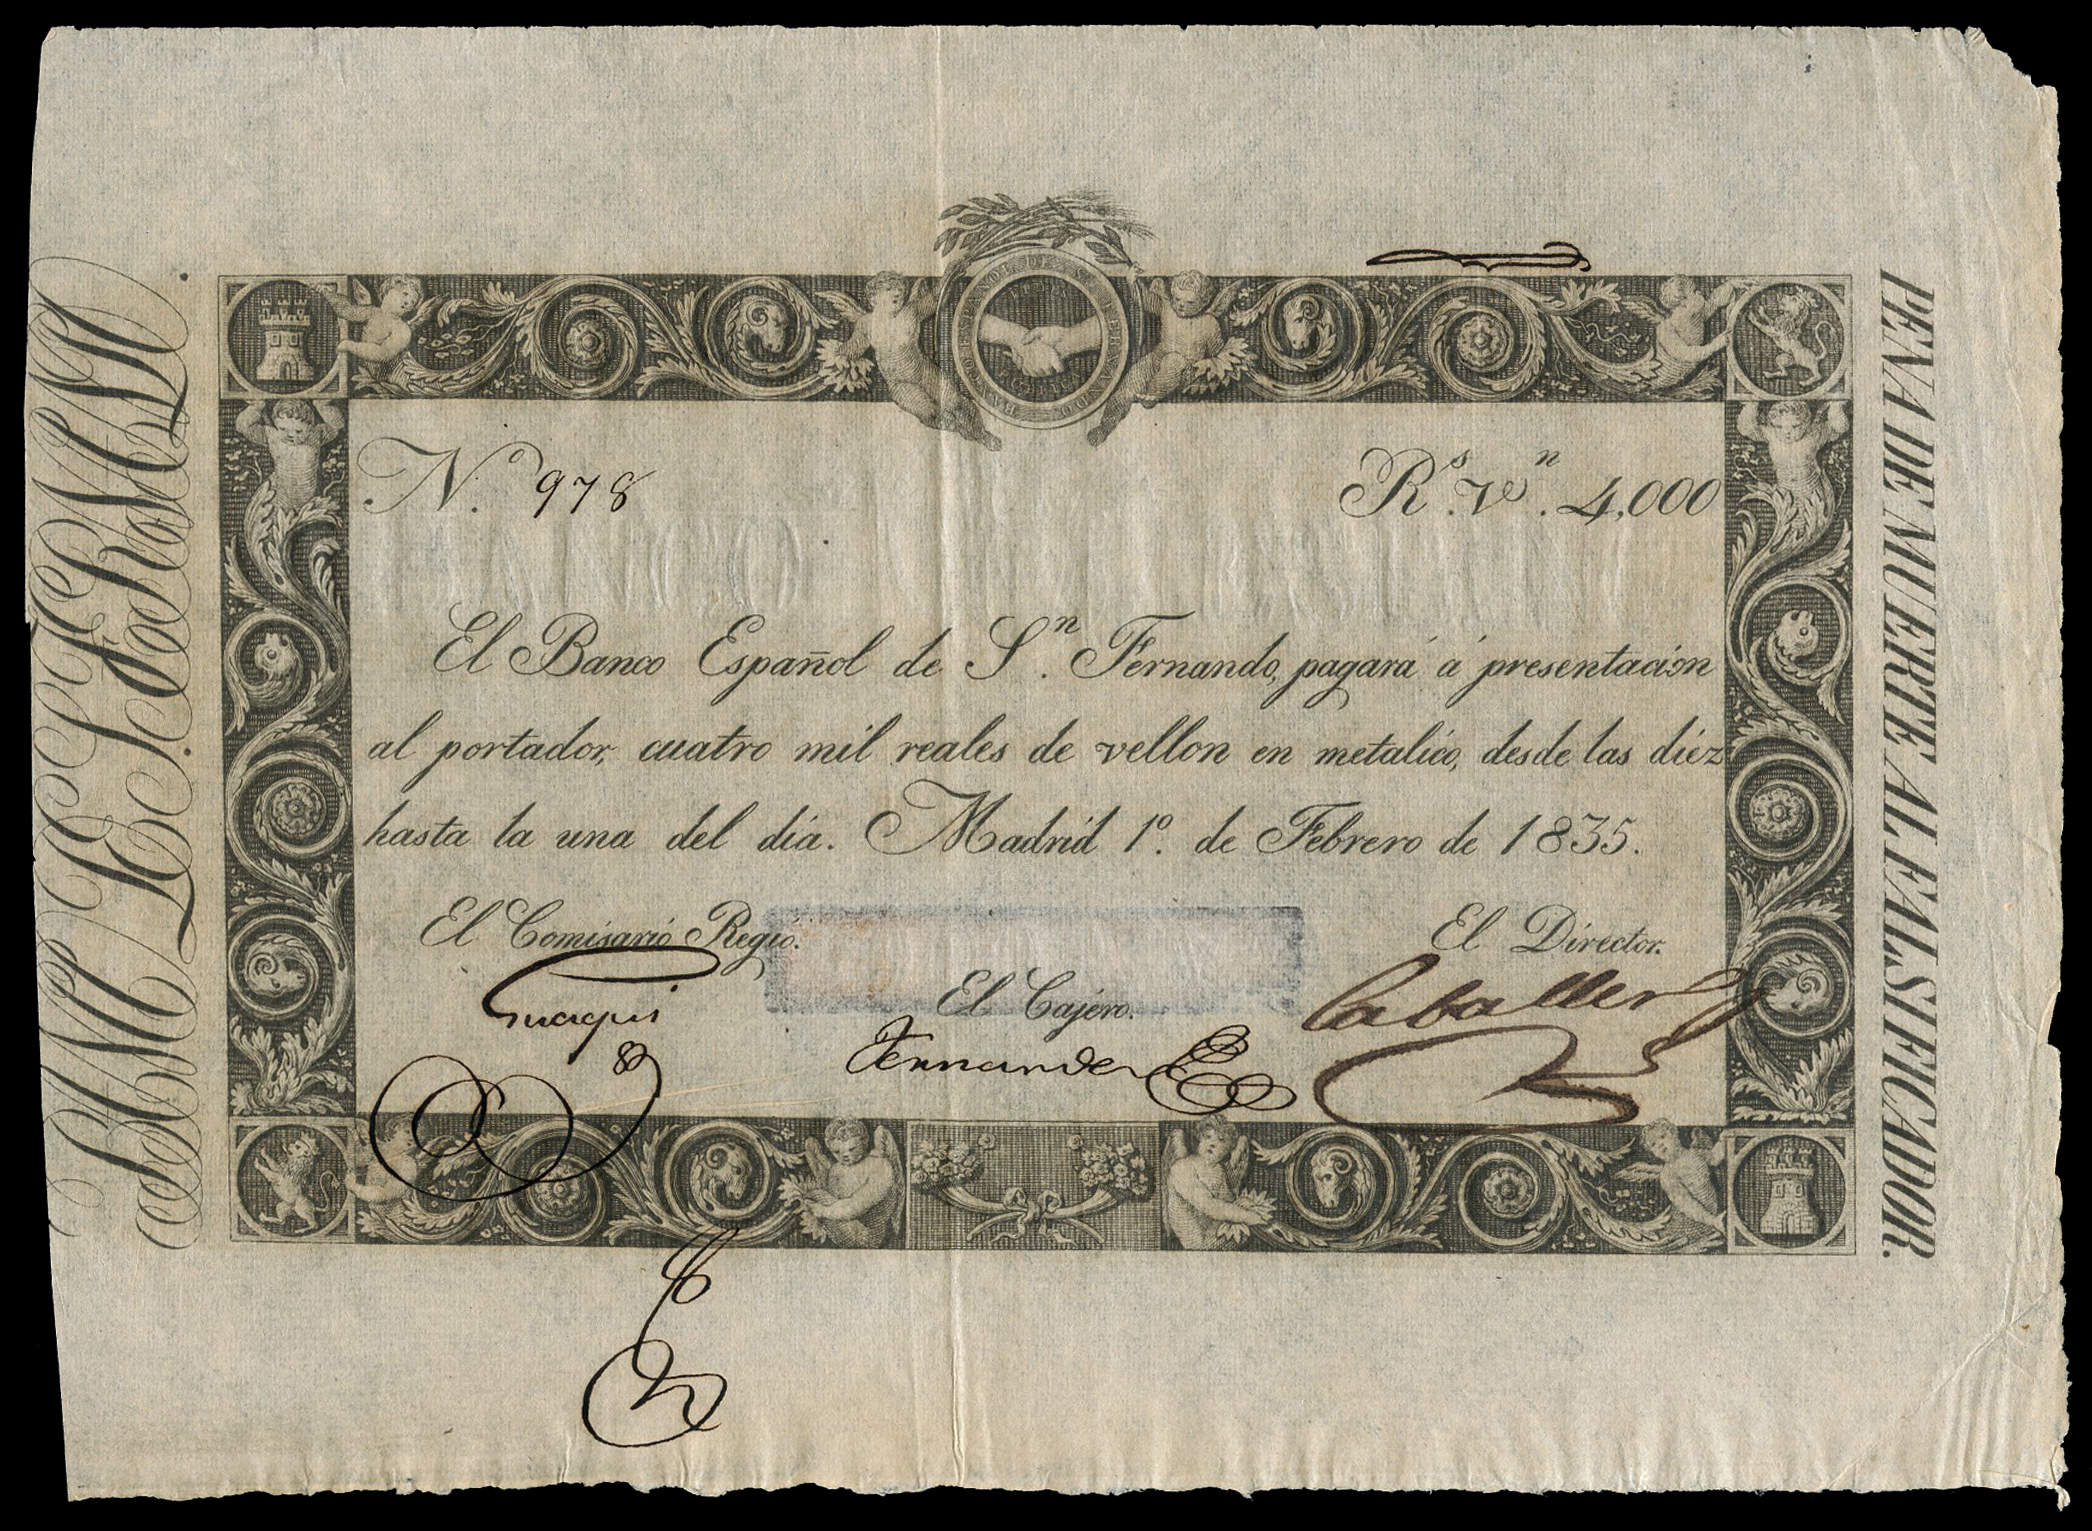 BANCO ESPAÑOL DE S. FERNANDO
N.º 978
R.s v.n 4,000
El Banco Español de S.n Fernando, pagará á presentacion
al portador, cuatro mil reales de vellon en metalico, desde las diéz
hasta la una del dia. Madrid 1º. de Febrero de 1835.
El Comisario Regio.
El Director.
El Cajero.
Guaqui
Fernandez
Caballero
PENA DE MUERTE AL FALSIFICADOR.